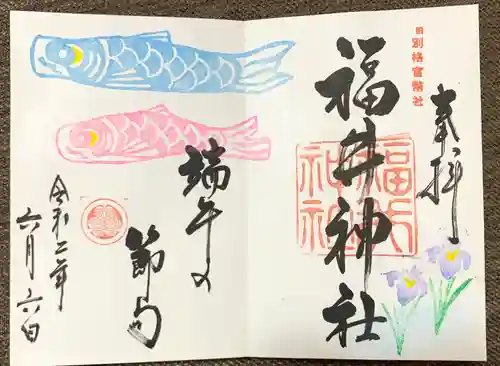 奉拝
旧別格官幣社
福井神社
福井
神社
端午の
節句
令和二年
六月六日